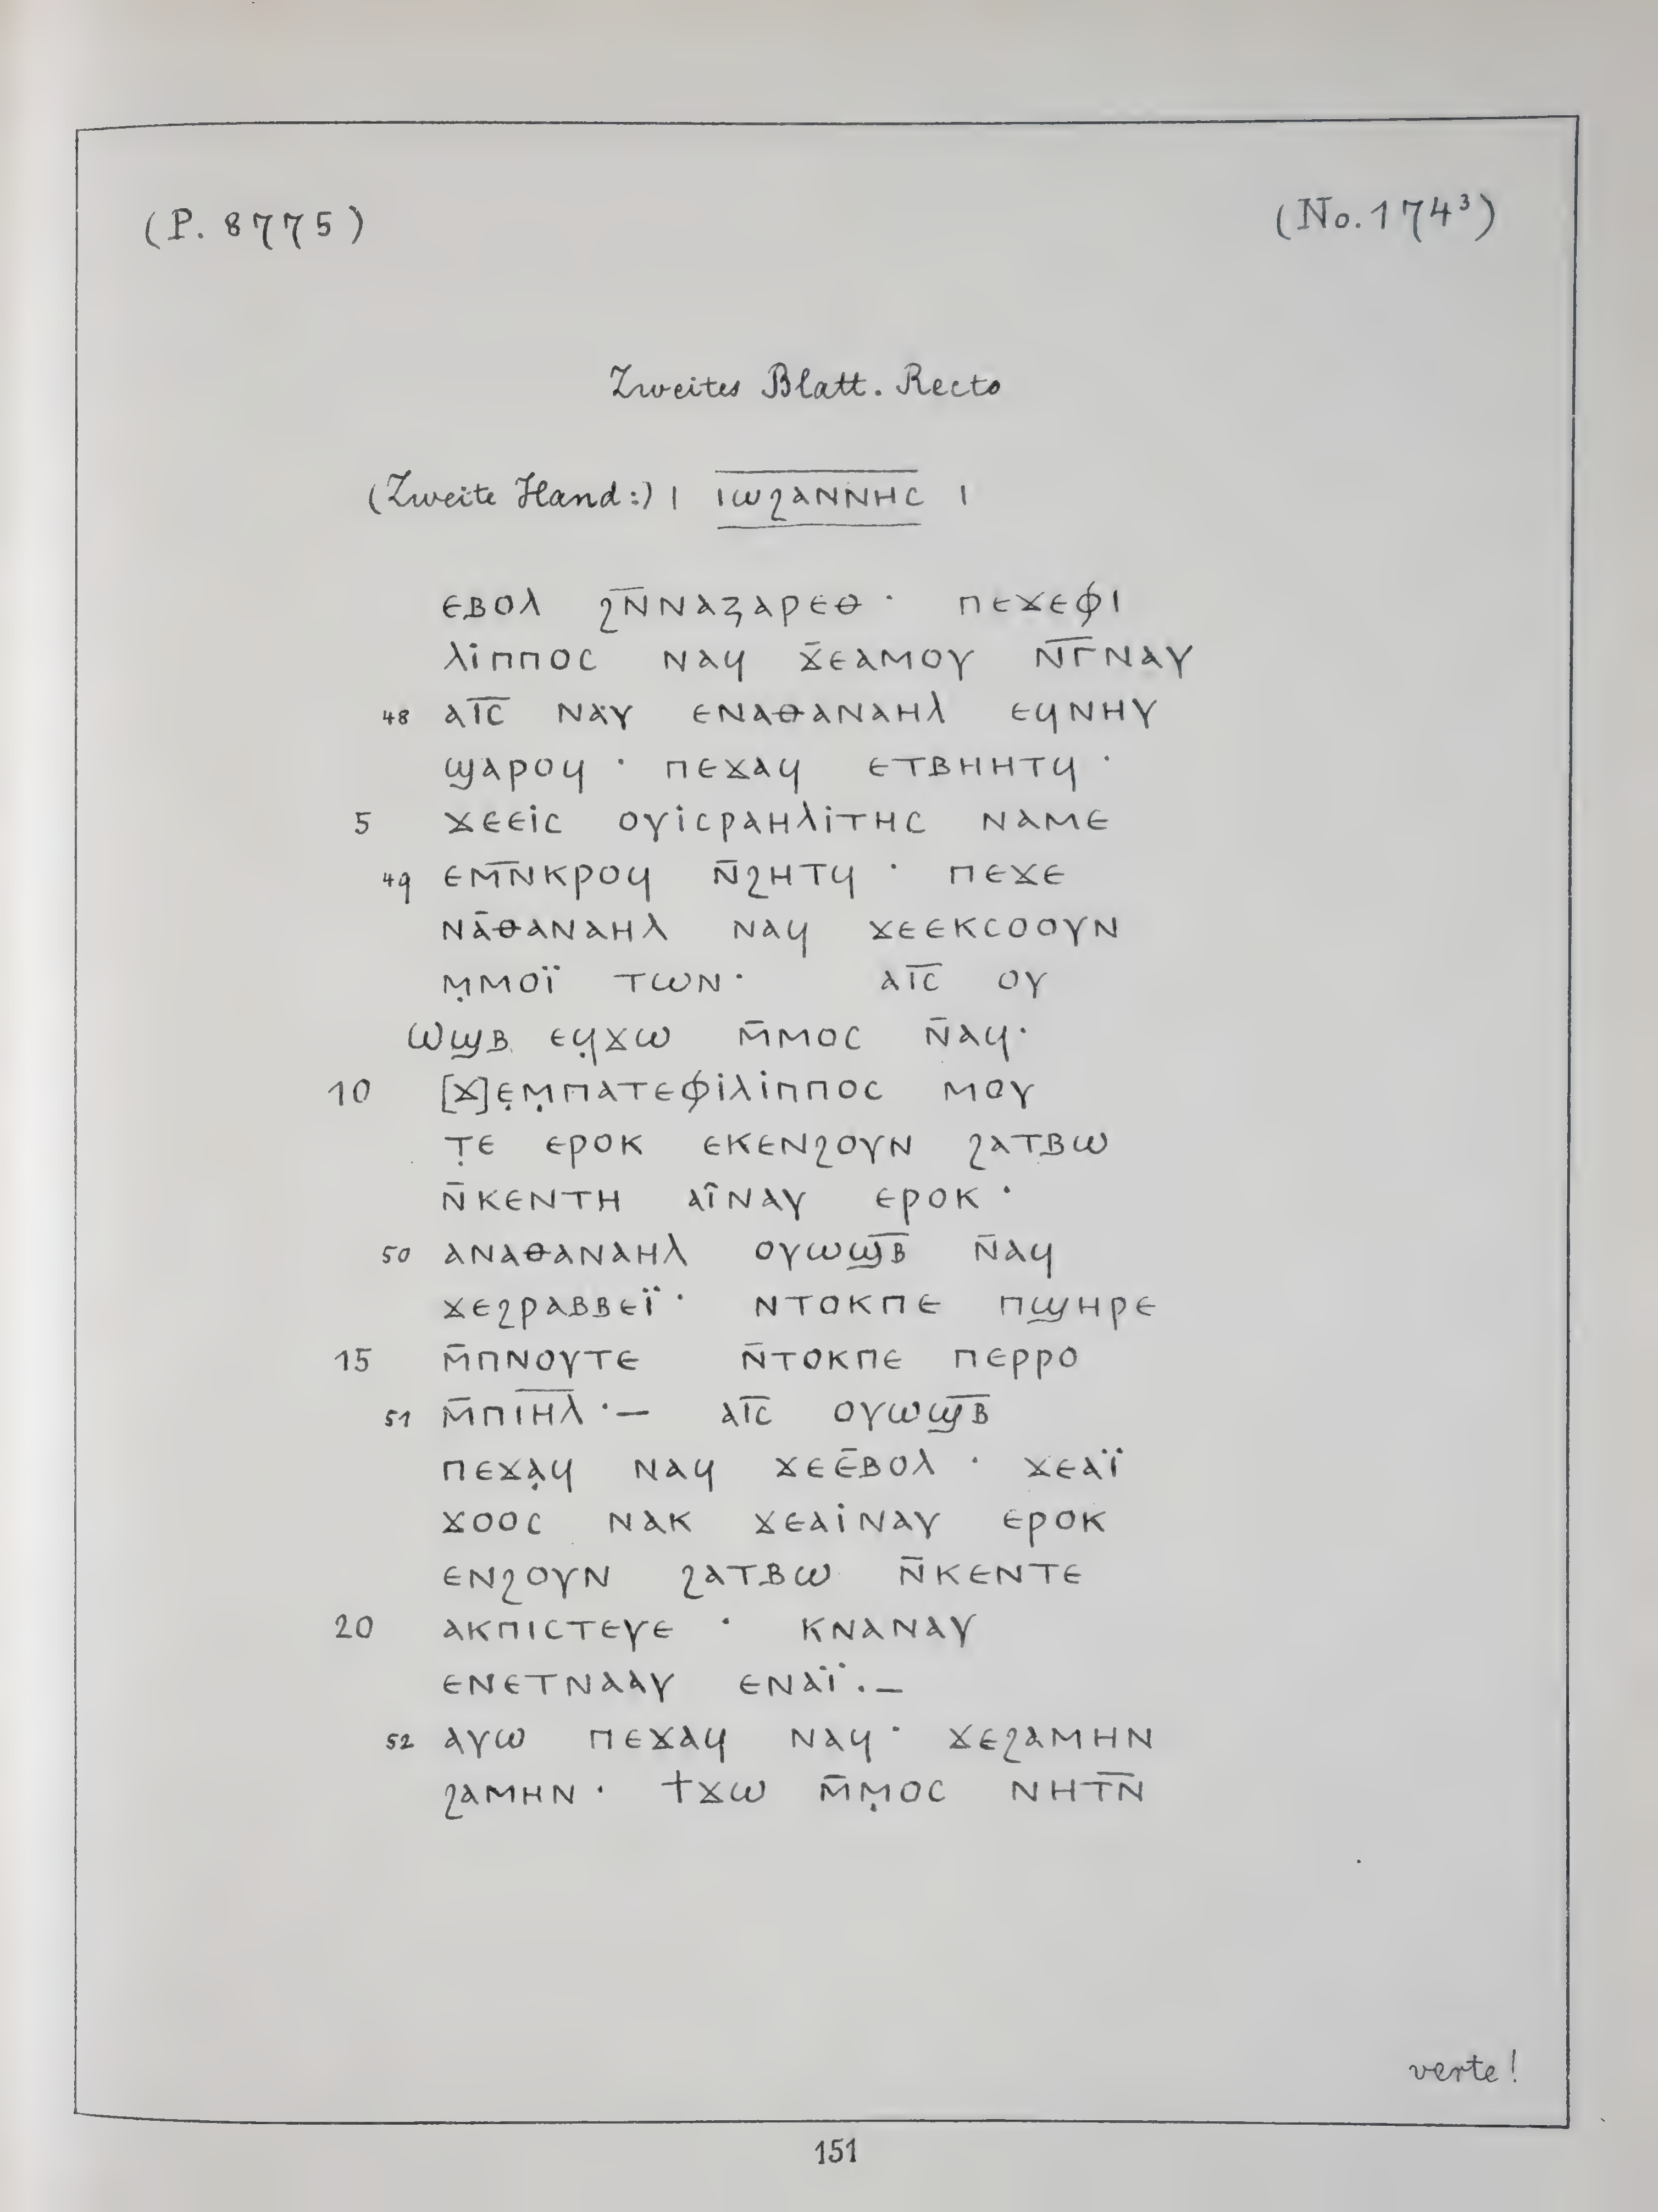 (P. 8775)
(No. 174³)
Zweites Blatt. Recto
(Zweite Hand:) | ⲓⲱϩⲁⲛⲛⲏⲥ |
ⲉⲃⲟⲗ ϩⲛ̅ⲛⲁⲍⲁⲣⲉⲑ · ⲡⲉϫⲉⲫⲓ
ⲗⲓⲡⲡⲟⲥ ⲛⲁϥ ϫ̄ⲉⲁⲙⲟⲩ ⲛ̅ⲅ̅ⲛⲁⲩ
48 ⲁⲓ̅ⲥ̅ ⲛⲁⲩ ⲉⲛⲁⲑⲁⲛⲁⲏⲗ ⲉϥⲛⲏⲩ
ϣⲁⲣⲟϥ · ⲡⲉϫⲁϥ ⲉⲧⲃⲏⲏⲧϥ ·
5 ϫⲉⲉⲓⲥ ⲟⲩⲓⲥⲣⲁⲏⲗⲓⲧⲏⲥ ⲛⲁⲙⲉ
49 ⲉⲙ̅ⲛ̅ⲕⲣⲟϥ ⲛ̄ϩⲏⲧϥ · ⲡⲉϫⲉ
ⲛⲁ̄ⲑⲁⲛⲁⲏⲗ ⲛⲁϥ ϫⲉⲉⲕⲥⲟⲟⲩⲛ
ⲙ̣ⲙⲟⲓ̈ ⲧⲱⲛ · ⲁⲓ̅ⲥ̅ ⲟⲩ
ⲱϣⲃ ⲉϥ̣ϫⲱ ⲙ̄ⲙⲟⲥ ⲛ̄ⲁϥ·
10 [ϫ]ⲉ̣ⲙ̣ⲡⲁⲧⲉⲫⲓⲗⲓⲡⲡⲟⲥ ⲙⲟⲩ
ⲧ̣ⲉ ⲉⲣⲟⲕ ⲉⲕⲉⲛϩⲟⲩⲛ ϩⲁⲧⲃⲱ
ⲛ̄ⲕⲉⲛⲧⲏ ⲁⲓ̂ⲛⲁⲩ ⲉⲣⲟⲕ ·
50 ⲁⲛⲁⲑⲁⲛⲁⲏⲗ ⲟⲩⲱϣ̅ⲃ̅ ⲛ̄ⲁϥ
ϫⲉϩⲣⲁⲃⲃⲉⲓ̈ · ⲛⲧⲟⲕⲡⲉ ⲡϣⲏⲣⲉ
15 ⲙ̄ⲡⲛⲟⲩⲧⲉ ⲛ̄ⲧⲟⲕⲡⲉ ⲡⲉⲣⲣⲟ
51 ⲙ̄ⲡⲓ̅ⲏ̅ⲗ̅ ·— ⲁⲓ̅ⲥ̅ ⲟⲩⲱϣ̅ⲃ̅
ⲡⲉϫⲁ̣ϥ ⲛⲁϥ ϫⲉⲉ̄ⲃⲟⲗ · ϫⲉⲁⲓ̈
ϫⲟⲟⲥ ⲛⲁⲕ ϫⲉⲁⲓⲛⲁⲩ ⲉⲣⲟⲕ
ⲉⲛϩⲟⲩⲛ ϩⲁⲧⲃⲱ ⲛ̄ⲕⲉⲛⲧⲉ
20 ⲁⲕⲡⲓⲥⲧⲉⲩⲉ · ⲕⲛⲁⲛⲁⲩ
ⲉⲛⲉⲧⲛⲁⲁⲩ ⲉⲛⲁⲓ̈ .—
52 ⲁⲩⲱ ⲡⲉϫⲁϥ ⲛⲁϥ · ϫⲉϩⲁⲙⲏⲛ
ϩⲁⲙⲏⲛ · ϯϫⲱ ⲙ̄ⲙ̣ⲟⲥ ⲛⲏⲧ̅ⲛ̅
verte!
151